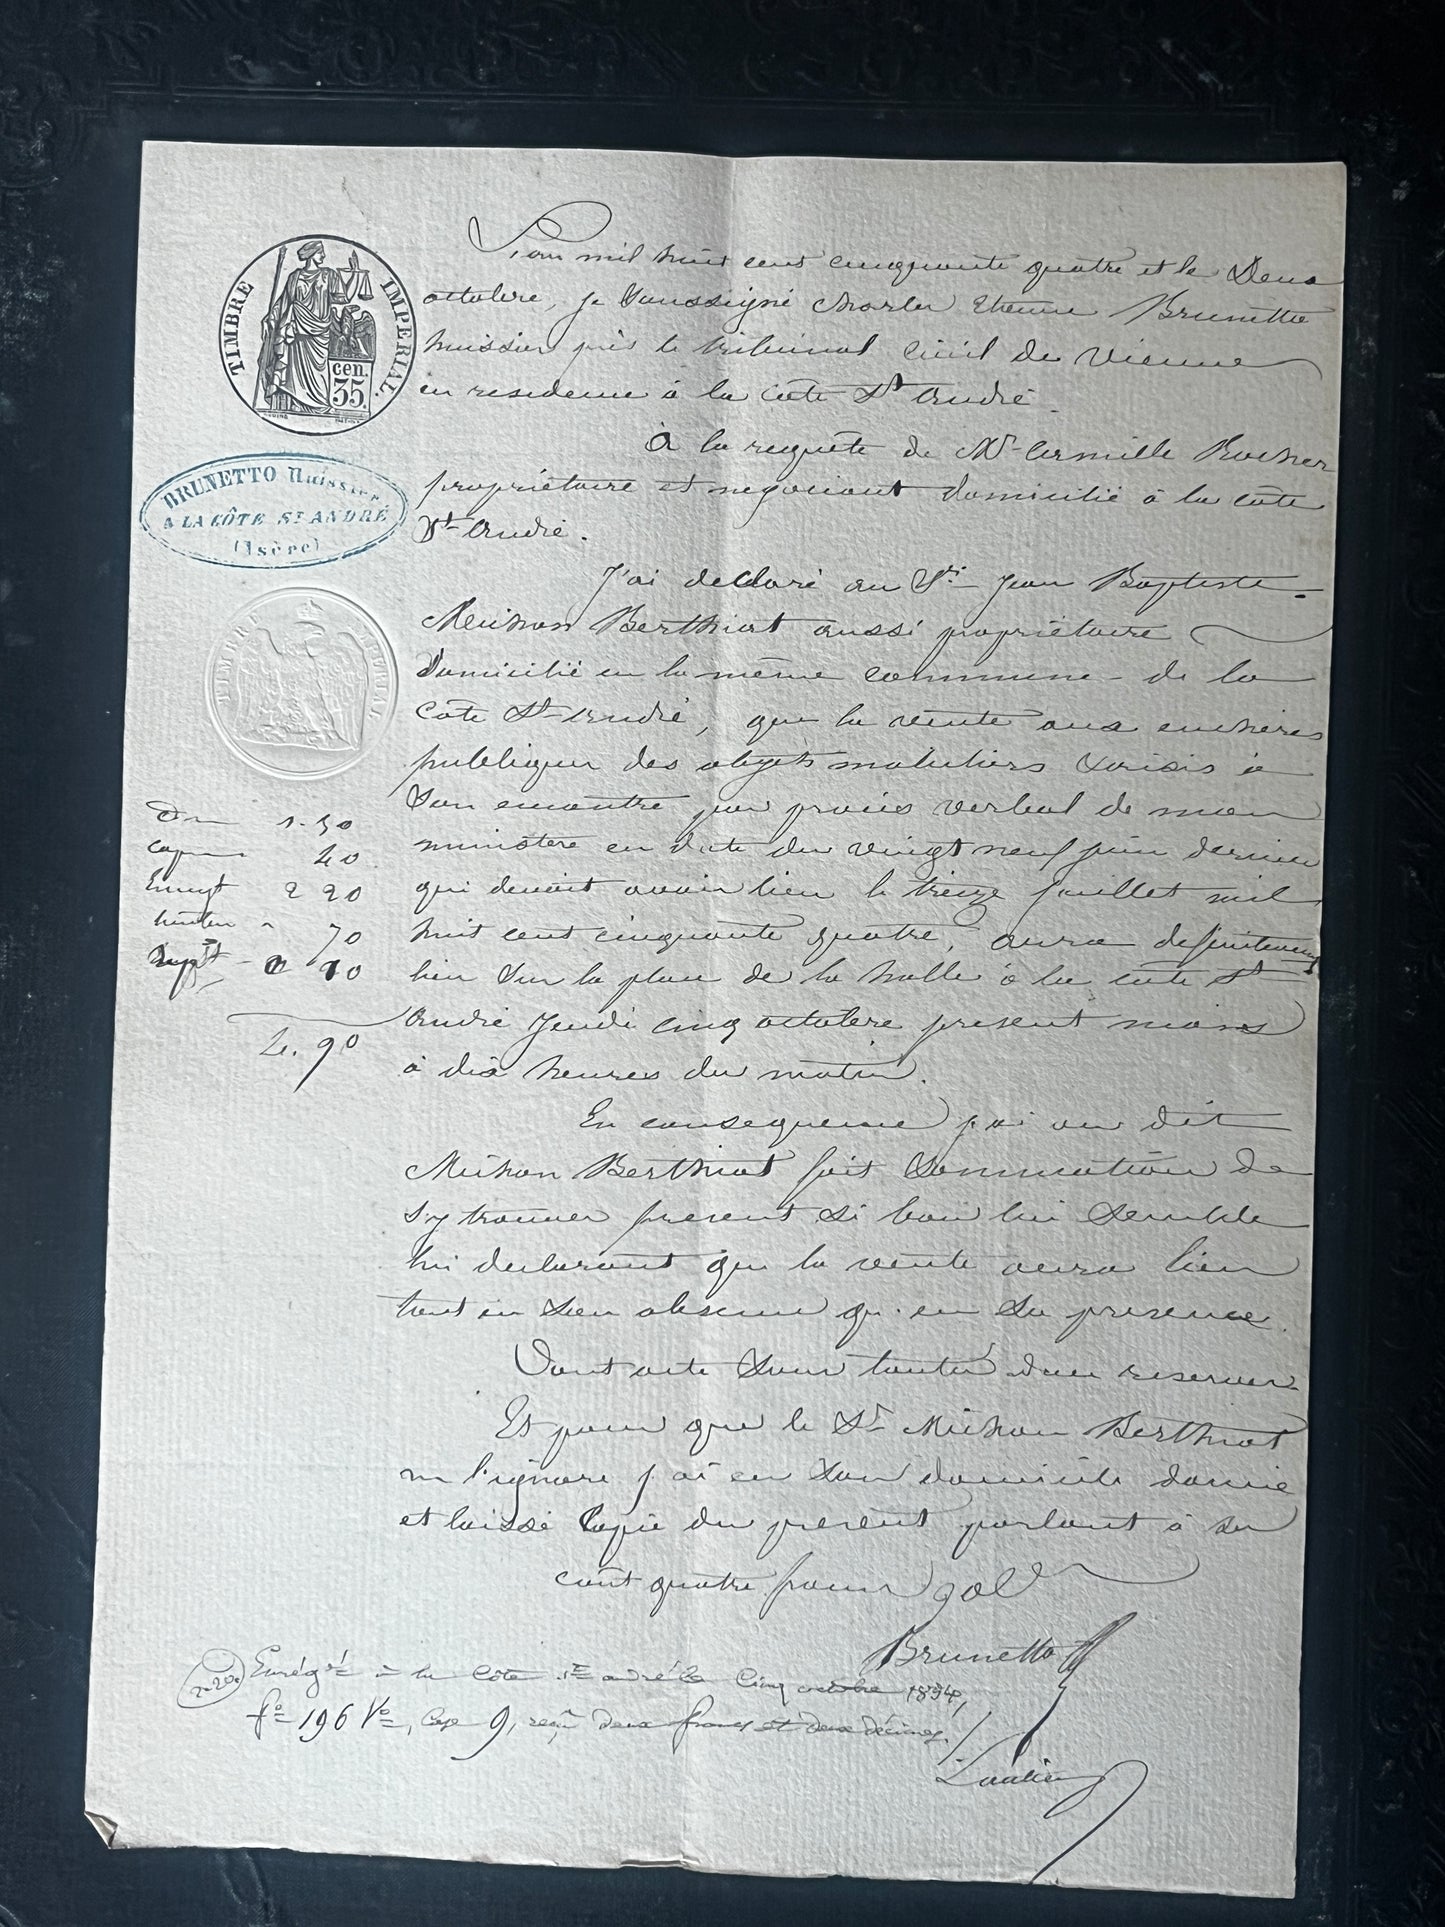 TIMBRE IMPERIAL.
cen.
35.
BRUNETTO Huissier
A LA CÔTE St ANDRÉ
(Isère)
TIMBRE IMPERIAL
L'an mil huit cent cinquante quatre et le Deux
octobre, je soussigné Charles Etienne Brunetto
huissier près le tribunal civil de Vienne
en residence à la côte St André.
à la requête de Mr Camille Rocher
propriétaire et negociant domicilié à la côte
St André.
J'ai declaré au Sr Jean Baptiste
Michon Berthiot aussi propriétaire
domicilié en la même commune de la
Côte St André, que la vente aux enchères
publiques des objets mobiliers saisis à
son encontre par procès verbal de mon
ministère en date du vingt neuf juin dernier
qui devait avoir lieu le treize juillet mil
huit cent cinquante quatre, aura definitivement
lieu sur la place de la halle à la côte St
André Jeudi cinq octobre present mois
à dix heures du matin.
En consequence j'ai au dit
Michon Berthiot fait sommation de
s'y trouver present si bon lui semble
lui declarant que la vente aura lieu
tant en son absence qu'en sa presence.
Dont acte sous toutes dues reserves
Et pour que le Sr Michon Berthiot
ne l'ignore j'ai en son domicile donné
et laissé Copie du present parlant à sa
cout quatre francs 90c
Brunetto
1.50
copie 40
Enregt 2 20
70
10
4. 90
2.20
Enregré à la Côte St andré le Cinq octobre 1854,
fo 196 Vo, Case 9, reçu deux francs et deux décimes.